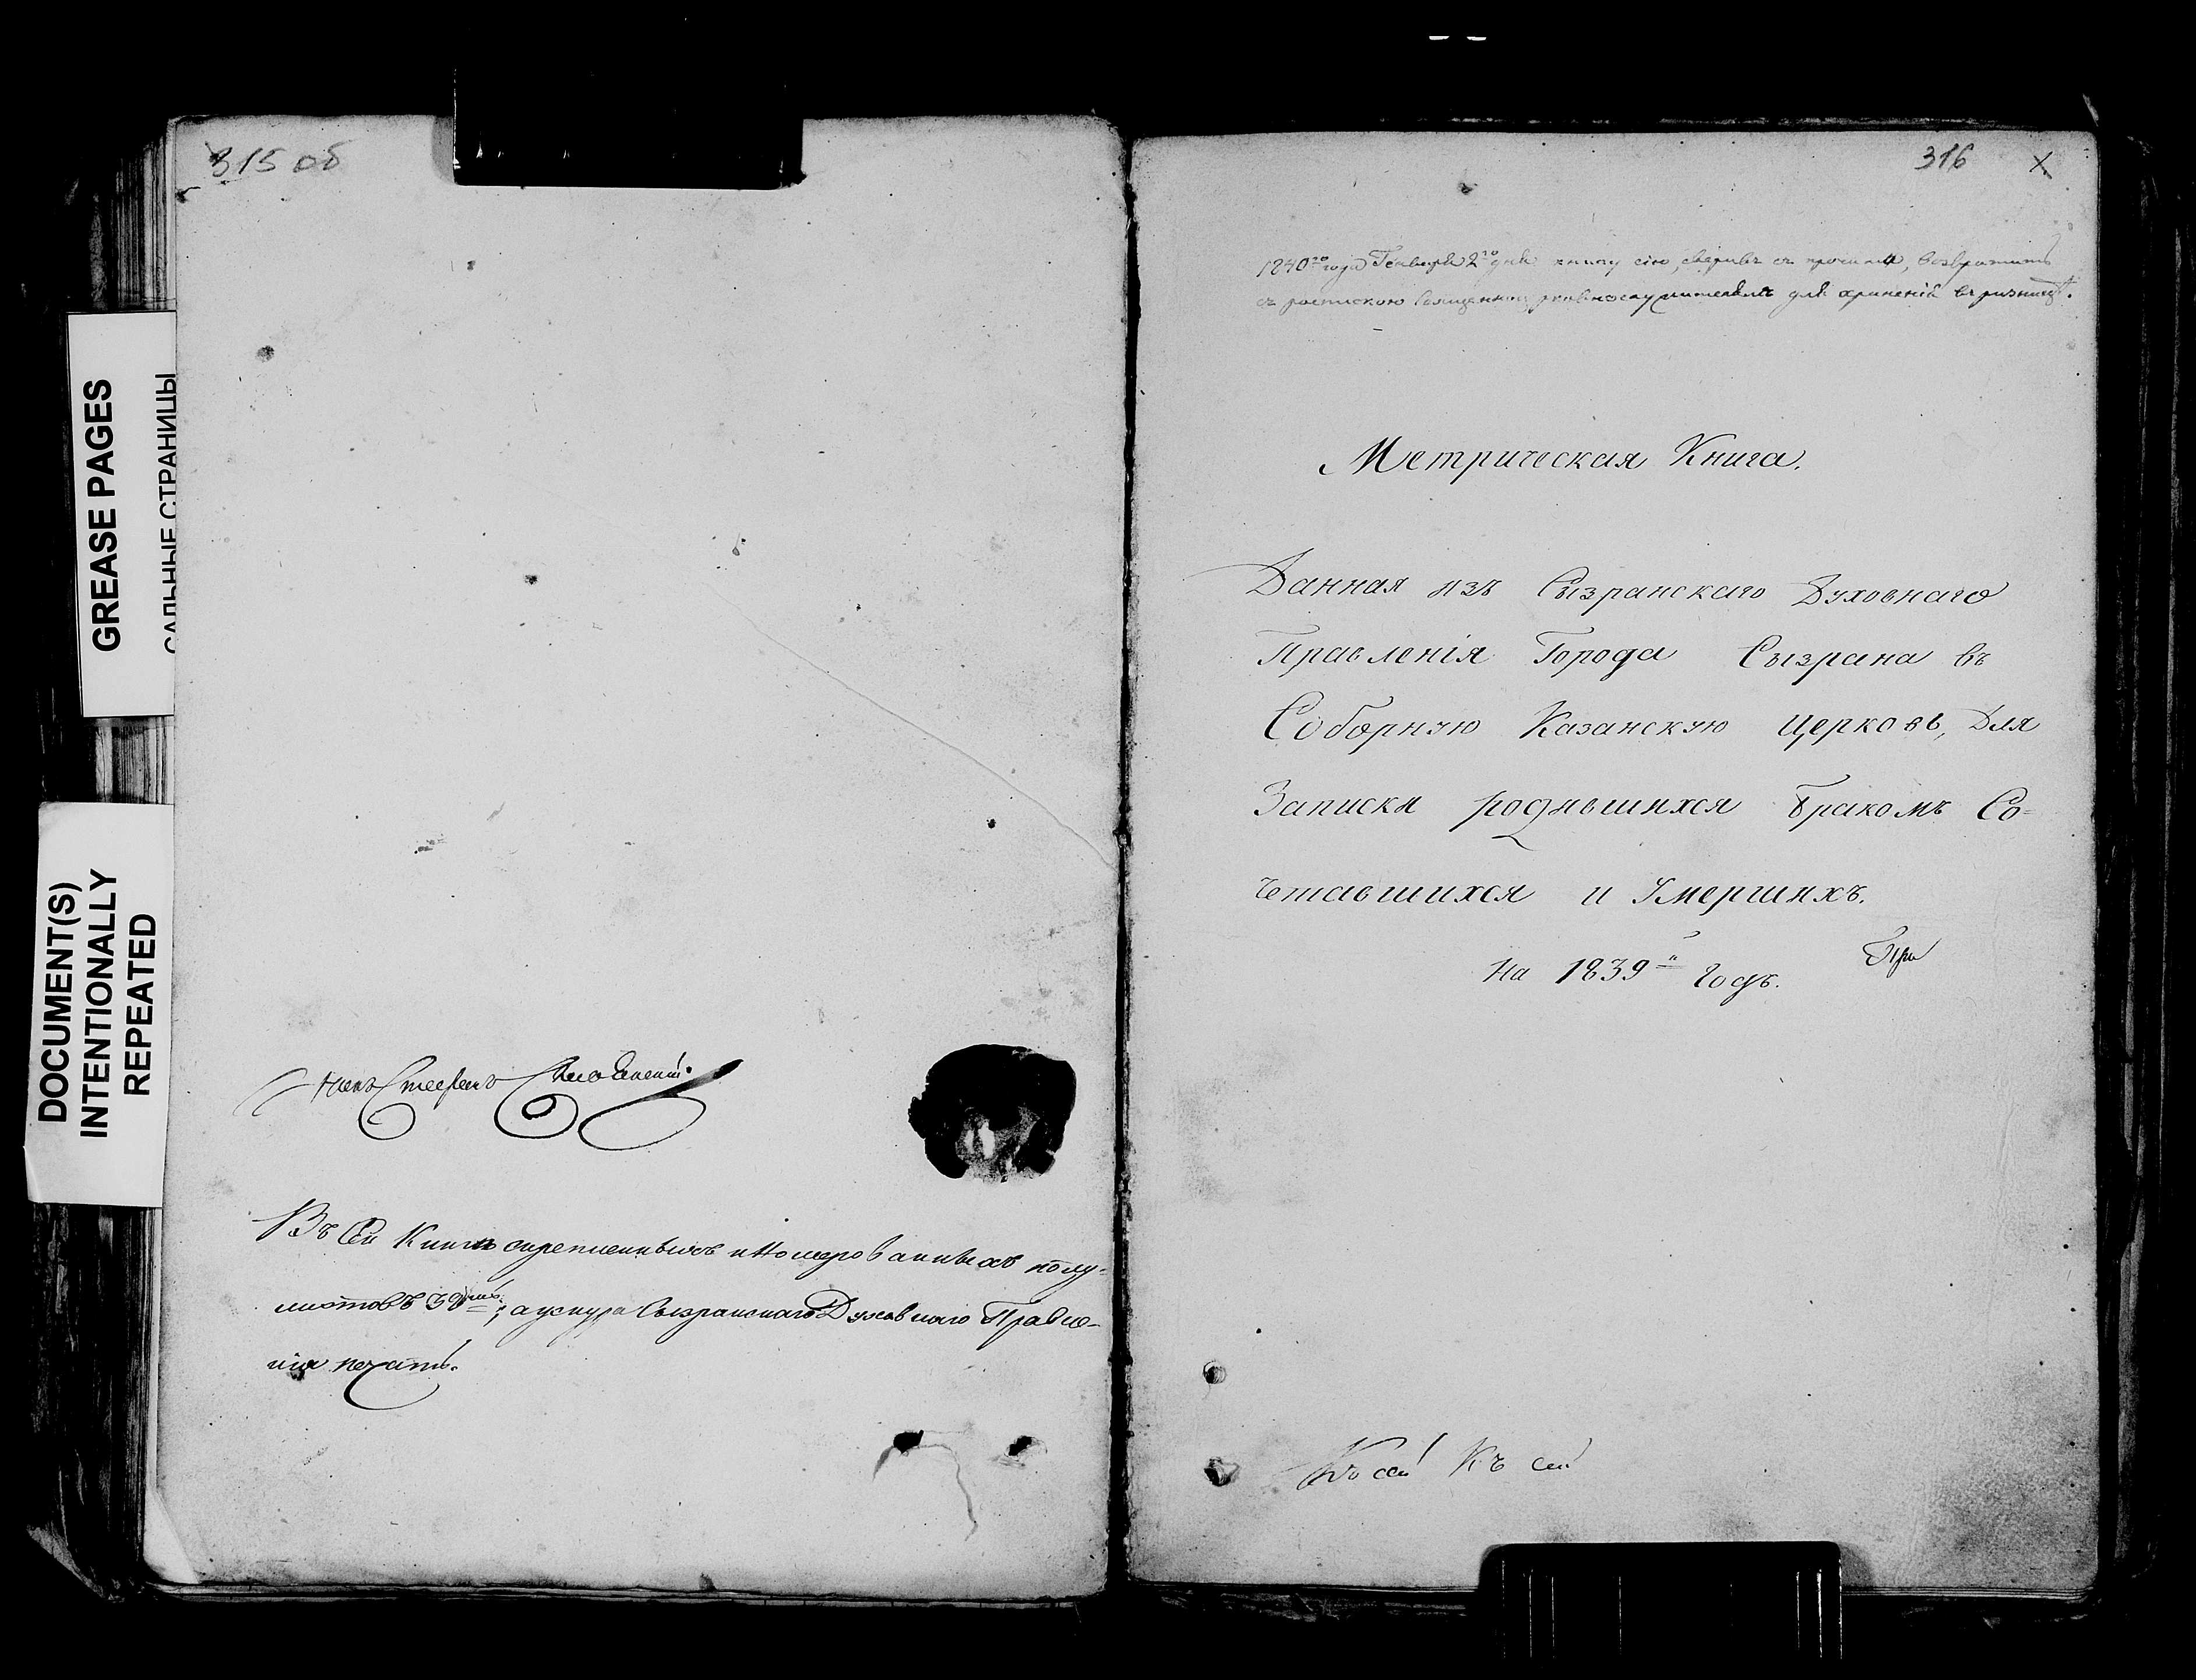 GREASE PAGES
САЛЬНЫЕ СТРАНИЦЫ
DOCUMENT(S)
INTENTIONALLY
REPEATED
315 об
Членъ Стефанъ
Въ сей Книгѣ скрепленныхъ и Номерованныхъ полу-
листовъ у шнура Сызранскаго Духовнаго Правле-
нія печать.
316 X
1840го года Генваря 2го дня книгу сію, сверивъ съ прочими, возвратить
съ роспискою для храненія въ ризницѣ.
Метрическая Книга.
Данная изъ Сызранскаго Духовнаго
Правленія Города Сызрана въ
Соборную Казанскую Церковь, Для
Записки родившихся Бракомъ Со-
четавшихся и Умершихъ.
на 1839й Годъ.
При
Къ сей Къ сей